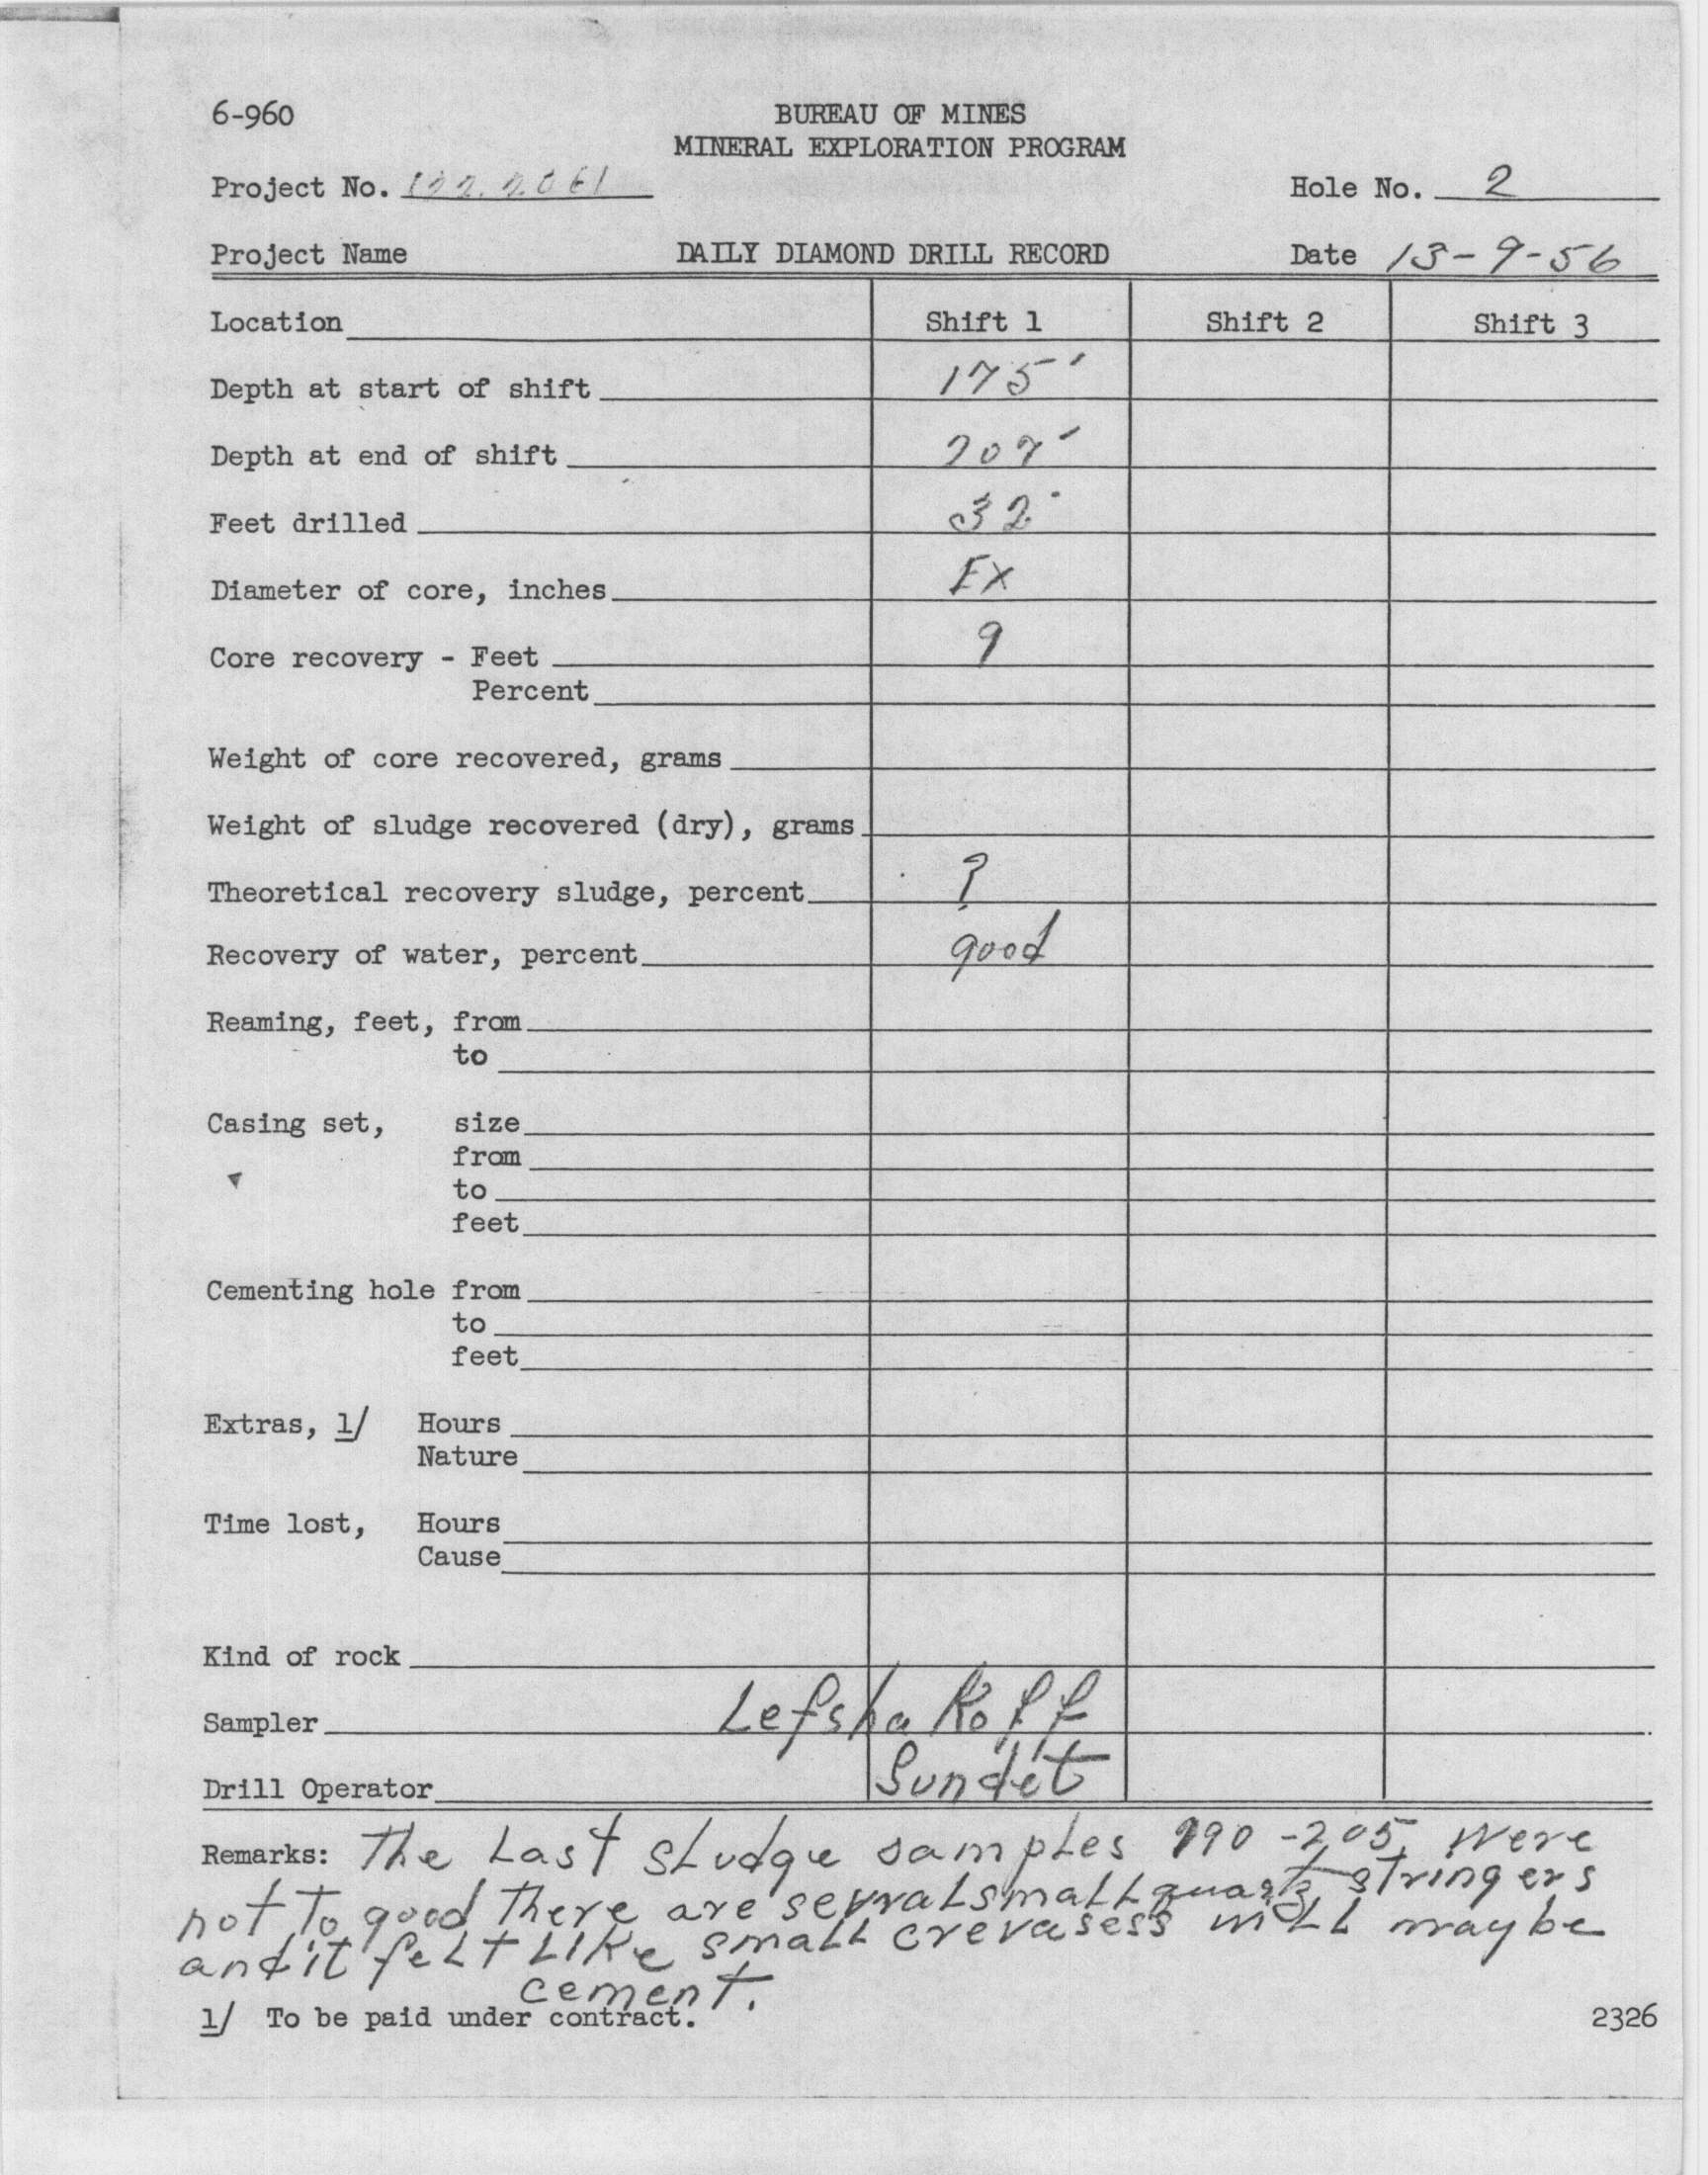 6-960
BUREAU OF MINES
MINERAL EXPLORATION PROGRAM
Project No. 122.2061
Hole No. 2
Project Name DAILY DIAMOND DRILL RECORD Date 13-9-56
Location Shift 1 Shift 2 Shift 3
Depth at start of shift 175'
Depth at end of shift 207'
Feet drilled 32'
Diameter of core, inches EX
Core recovery - Feet 9
Percent
Weight of core recovered, grams
Weight of sludge recovered (dry), grams
Theoretical recovery sludge, percent ?
Recovery of water, percent good
Reaming, feet, from
to
Casing set, size
from
to
feet
Cementing hole from
to
feet
Extras, 1/ Hours
Nature
Time lost, Hours
Cause
Kind of rock
Sampler Lefshakoff
Drill Operator Sundet
Remarks: The Last sludge samples 190-205, were
not to good there are sevral small quartz stringers
and it felt like small crevasess will maybe
cement.
1/ To be paid under contract.
2326